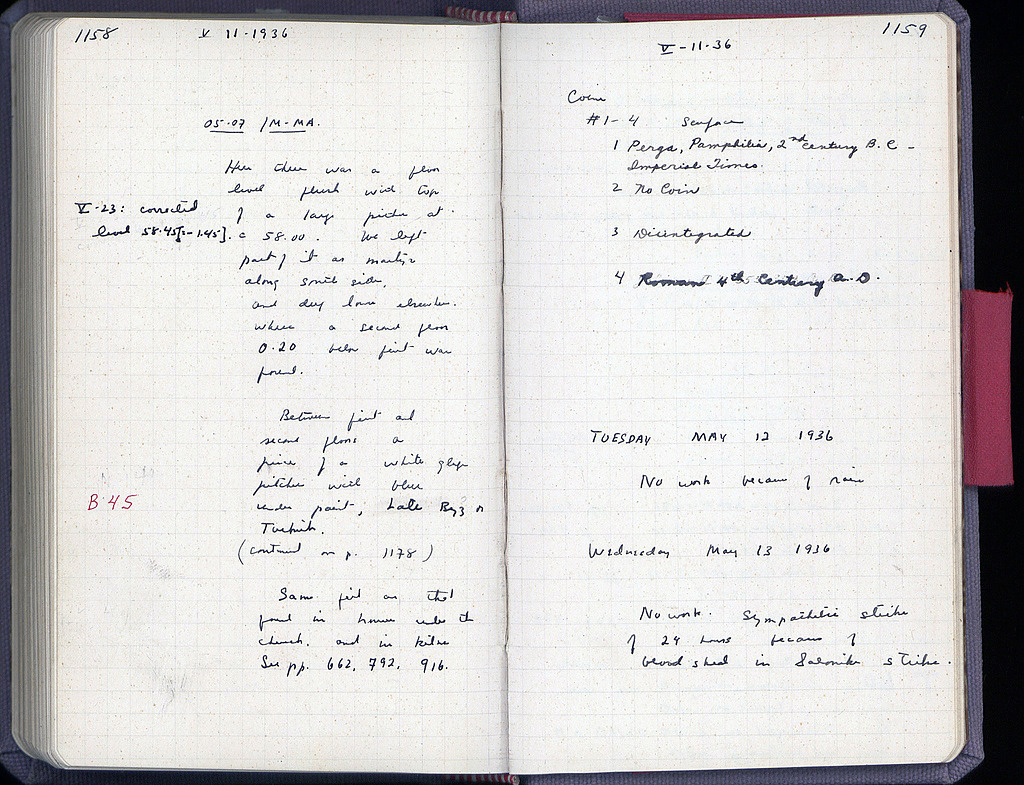 1158
V 11-1936
05-07 / M-MA.
Here there was a floor
level flush with top
of a large pithos at
V-23: corrected
level 58.45 [=-1.45].
c 58.00. We left
part of it as martyr
along south side,
and dug lower elsewhere.
where a second floor
0.20 below first was
found.
Between first and
second floors a
piece of a white glaze
pitcher with blue
B 45
under paint, Late Byz or
Turkish.
(continued on p. 1178)
Same as that
found in houses under the
church. and in kilns
See pp. 662, 792, 916.
1159
V-11-36
Coins
#1-4 Surface
1 Perga, Pamphilia, 2nd century B.C -
Imperial Times.
2 No Coin
3 Disintegrated
4 Roman 4th Century A.D.
TUESDAY MAY 12 1936
No work because of rain
Wednesday May 13 1936
No work. Sympathetic strike
of 24 hours because of
blood shed in Salonika strike.